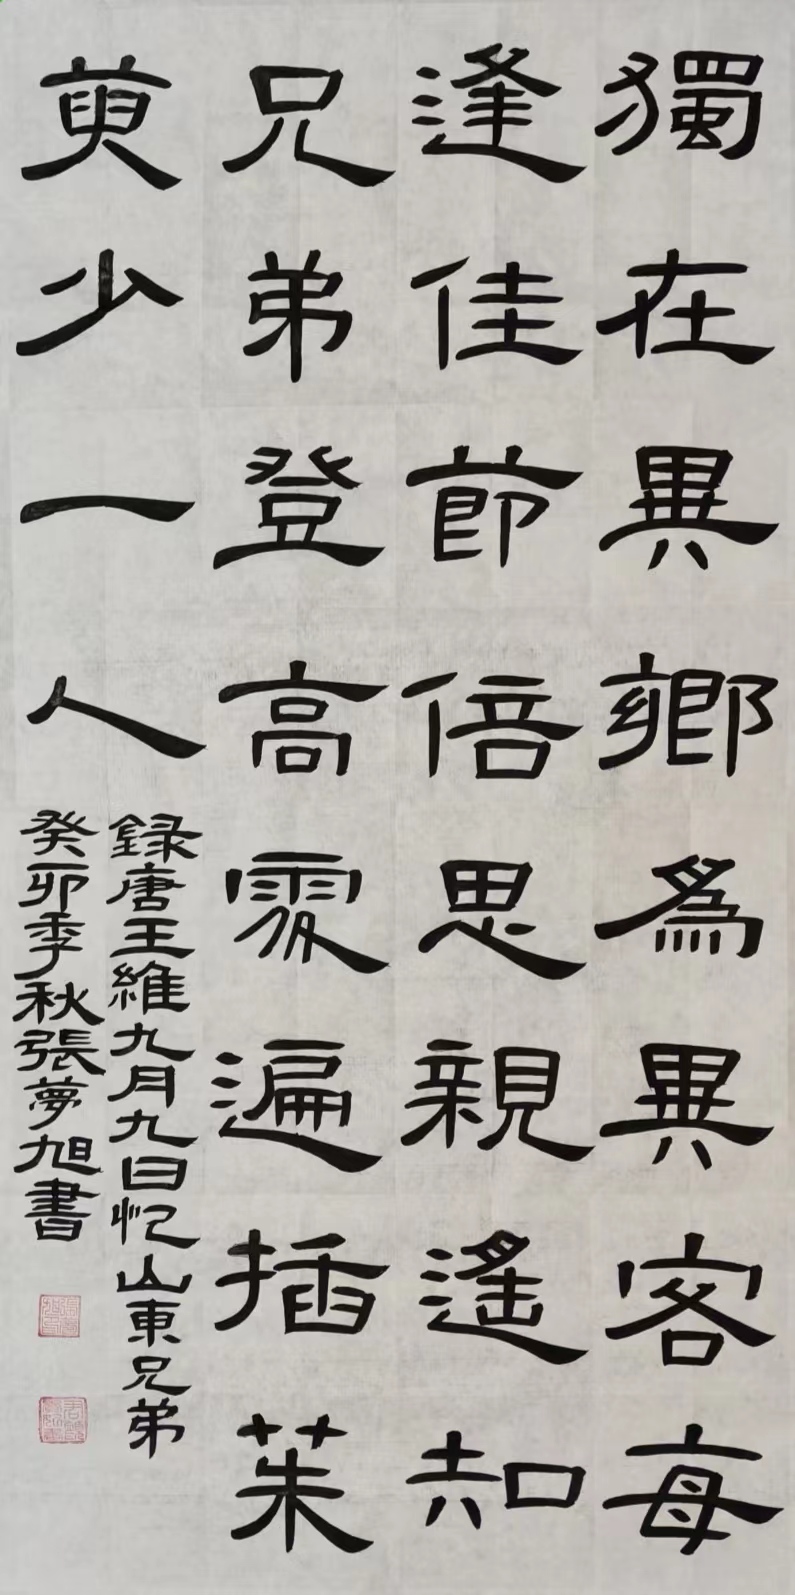 獨在異鄉爲異客每
逢佳節倍思親遙知
兄弟登高處遍插茱
萸少一人
錄唐王維九月九日忆山東兄弟
癸卯季秋張夢旭書